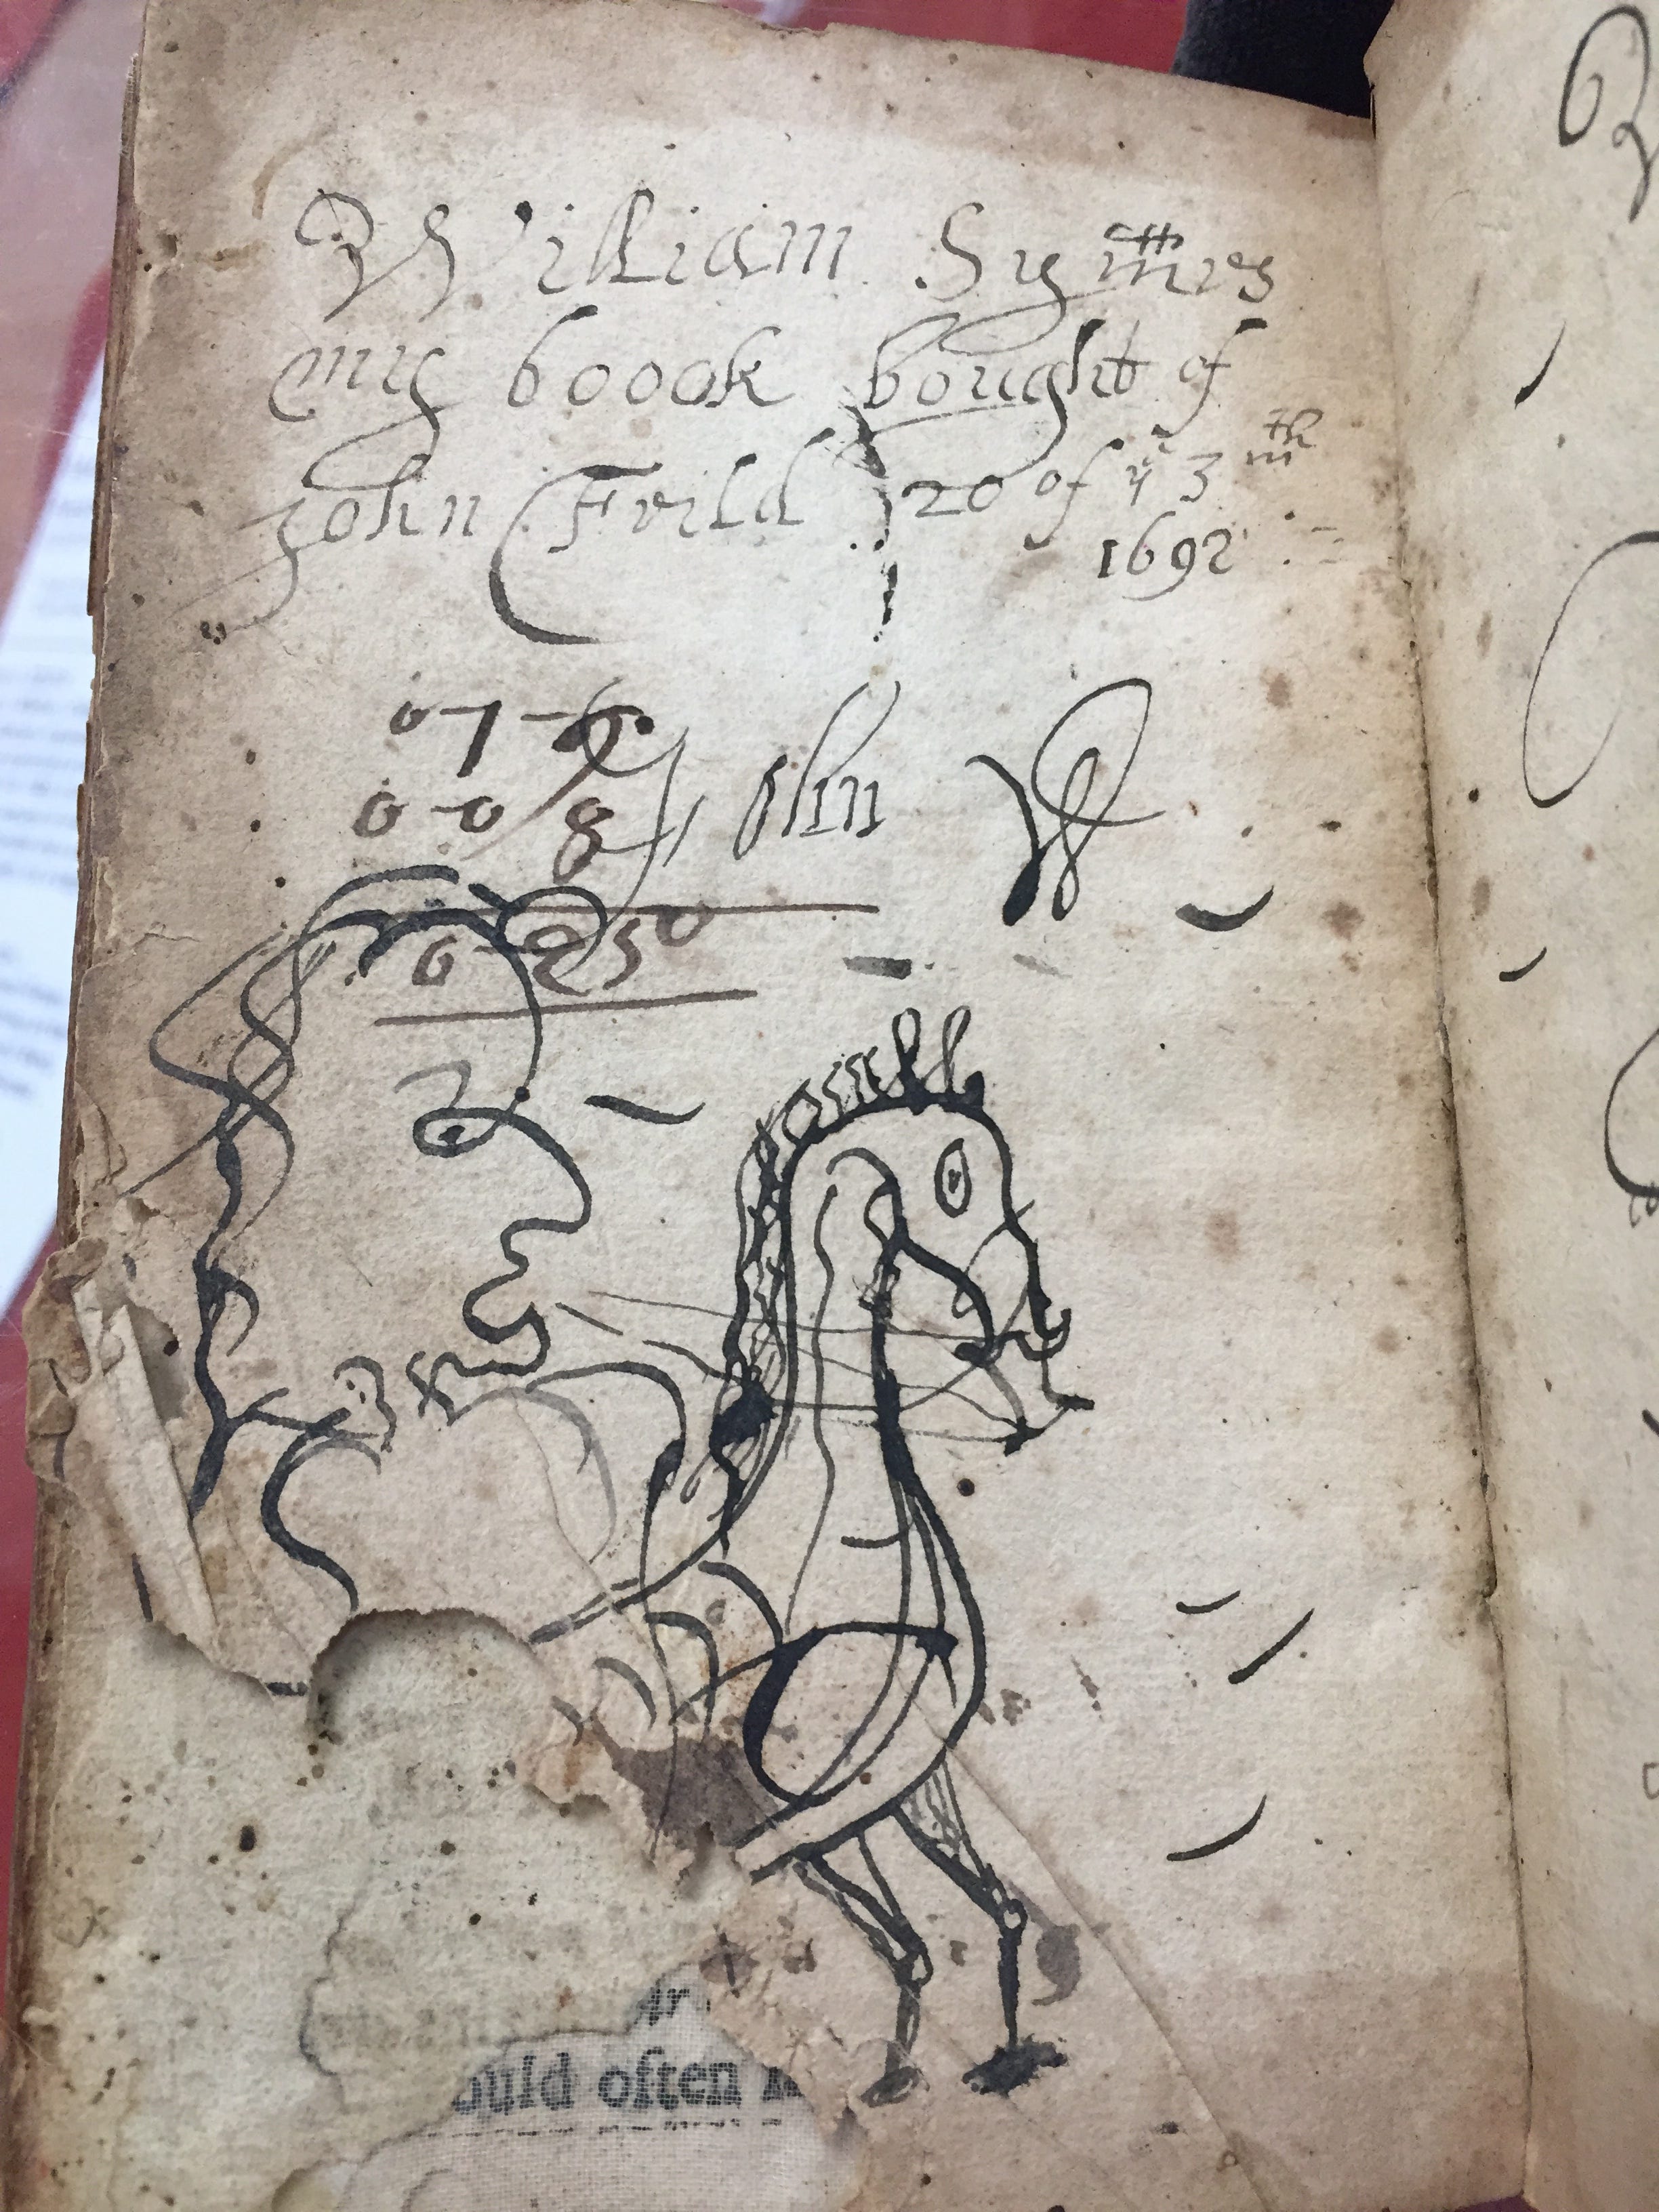 William Symmes
my boook bought of
John Feild 20 of ye 3 mth
1692
0-1-6
0-0 8
John W
ould often